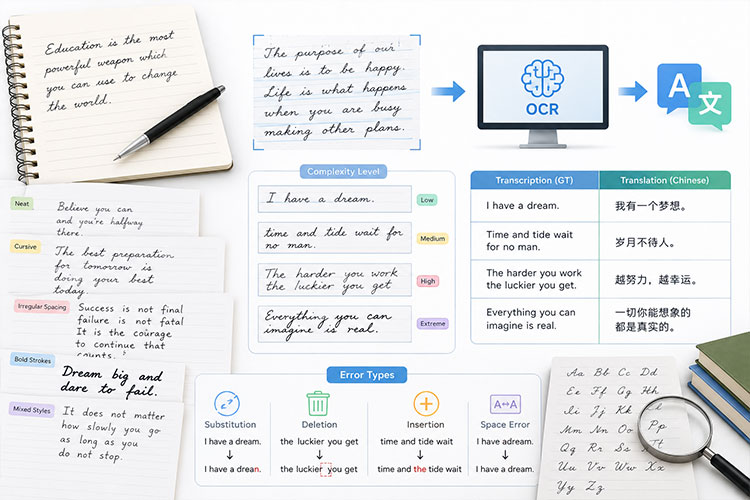 Education is the most
powerful weapon which
you can use to change
the world.
The purpose of our
lives is to be happy.
Life is what happens
when you are busy
making other plans.
OCR
A
文
Complexity Level
I have a dream.
Low
time and tide wait for
no man.
Medium
The harder you work
the luckier you get
High
Everything you can
imagine is real.
Extreme
Transcription (GT)
Translation (Chinese)
I have a dream.
我有一个梦想。
Time and tide wait
for no man.
岁月不待人。
The harder you work
the luckier you get.
越努力，越幸运。
Everything you can
imagine is real.
一切你能想象的
都是真实的。
Neat
Believe you can
and you're halfway
there.
Cursive
The best preparation
for tomorrow is
doing your best
today.
Irregular Spacing
Success is not final
failure is not fatal
It is the courage
to continue that
counts.
Bold Strokes
Dream big and
dare to fail.
Mixed Styles
It does not matter
how slowly you go
as long as you
do not stop.
Error Types
Substitution
I have a dream.
I have a drean.
Deletion
the luckier you get
the luckier you get
Insertion
time and tide wait
time and the tide wait
A↔A
Space Error
I have adream.
I have a dream.
Aa Bb Cc Dd
Ee Ff Gg Hh
Ii Jj Kk Ll
Mm Nn Oo Pp
Qq Rr Ss Tt
Uu Vv Ww Xx
Yy Zz